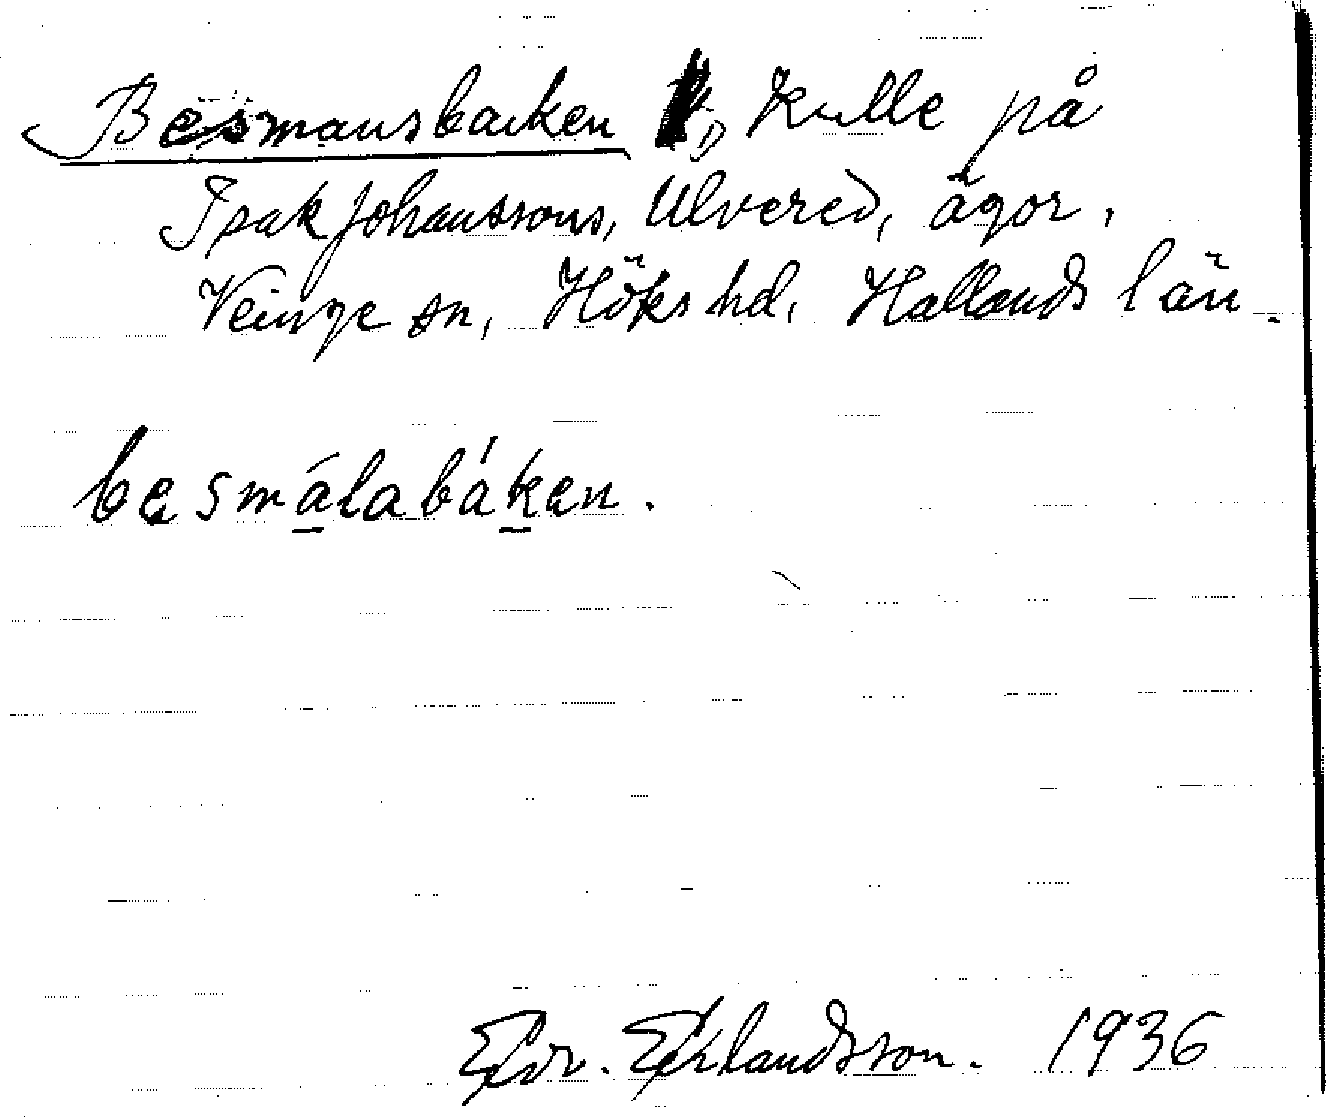 Besmansbacken, Kulle på
Isak Johanssons, Ulvered, ägor,
Veinge sn, Höks hd, Hallands län.
besmálabáken.
Edv. Erlandsson. 1936